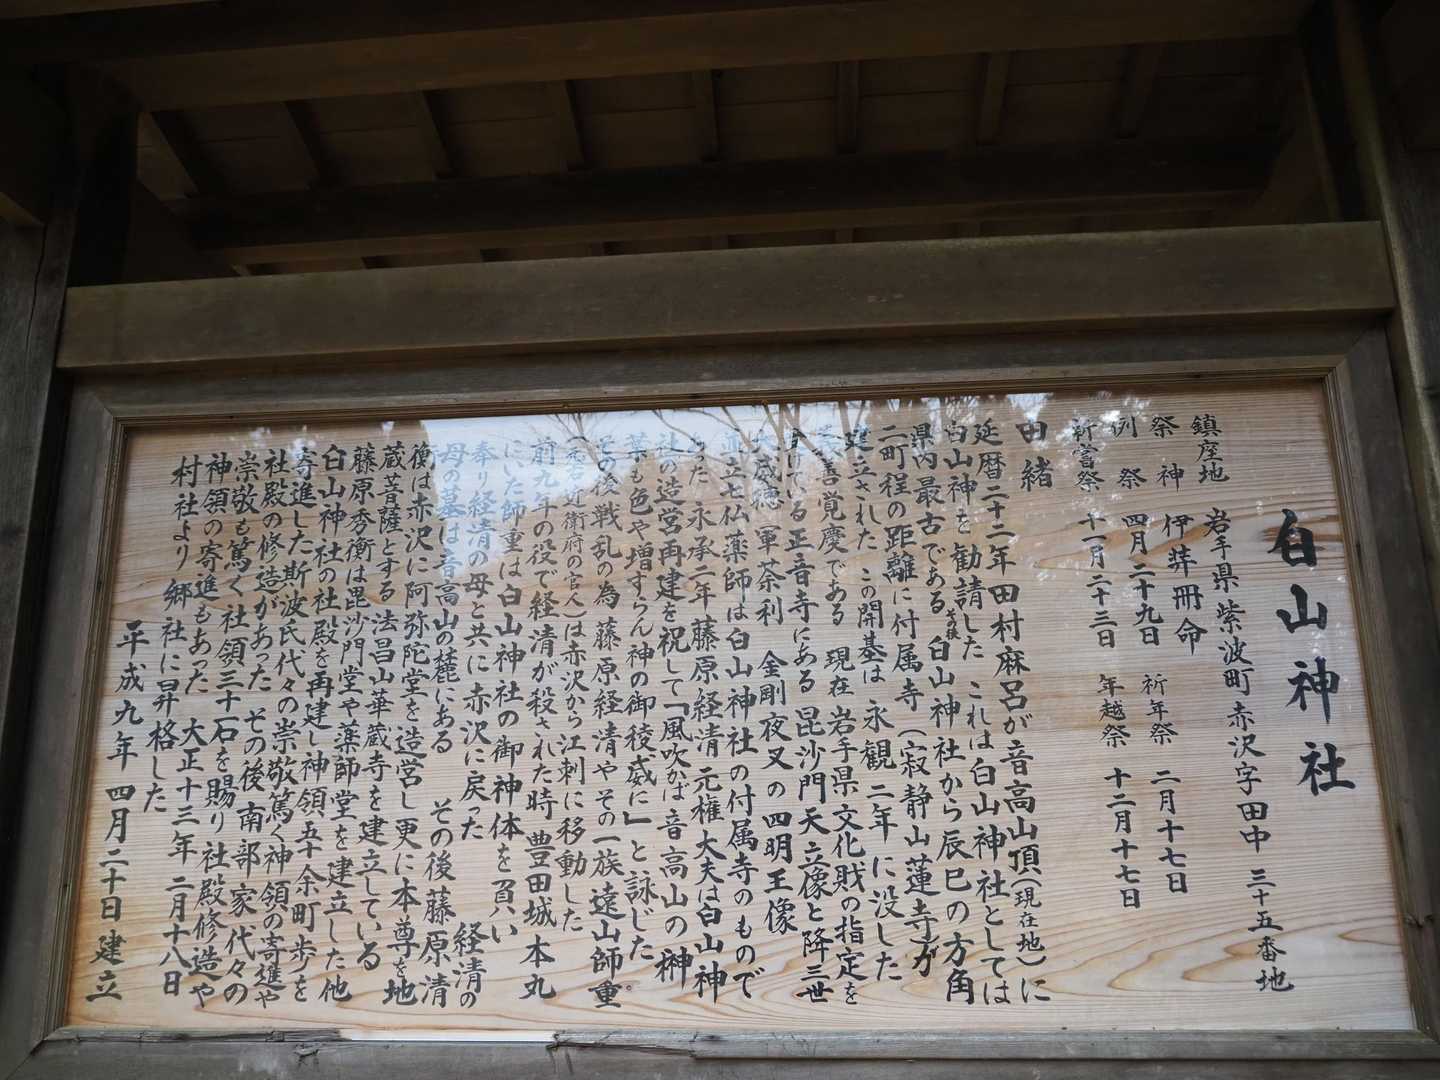 白山神社
鎮座地 岩手県紫波町赤沢字田中 三十五番地
祭神 伊弉冊命
例祭 四月二十九日 祈年祭 二月十七日
新嘗祭 十一月二十三日 年越祭 十二月十七日
由緒
延暦二十二年田村麻呂が音高山頂(現在地)に
白山神を勧請した これは白山神社としては
県内最古である その後 白山神社から辰巳の方角
二町程の距離に付属寺(寂静山蓮寺)が
建立された この開基は 永観二年に没した
善覚慶である 現在岩手県文化財の指定を
けている正音寺にある 毘沙門天立像と降三世
大威徳 軍荼利 金剛夜叉の四明王像
並立七仏薬師は白山神社の付属寺のもので
あった 永承二年藤原経清元権大夫は白山神
社の造営再建を祝して「風吹かば音高山の榊
葉も色や増すらん神の御稜威に」と詠じた
その後戦乱の為藤原経清やその一族遠山師重
(元近衛府の官人)は赤沢から江刺に移動した
前九年の役で経清が殺された時 豊田城本丸
にいた師重は白山神社の御神体を負い 経清の
奉り経清の母と共に赤沢に戻った
母の墓は音高山の麓にある その後藤原清
衡は赤沢に阿弥陀堂を造営し更に本尊を地
蔵菩薩とする法昌山華蔵寺を建立している
藤原秀衡は毘沙門堂や薬師堂を建立した他
白山神社の社殿を再建し神領五十余町歩を
寄進した斯波氏代々の崇敬篤く神領の寄進や
社殿の修造があった その後南部家代々の
崇敬も篤く社領三十石を賜り社殿修造や
神領の寄進もあった 大正十三年二月十八日
村社より郷社に昇格した
平成九年 四月二十日 建立